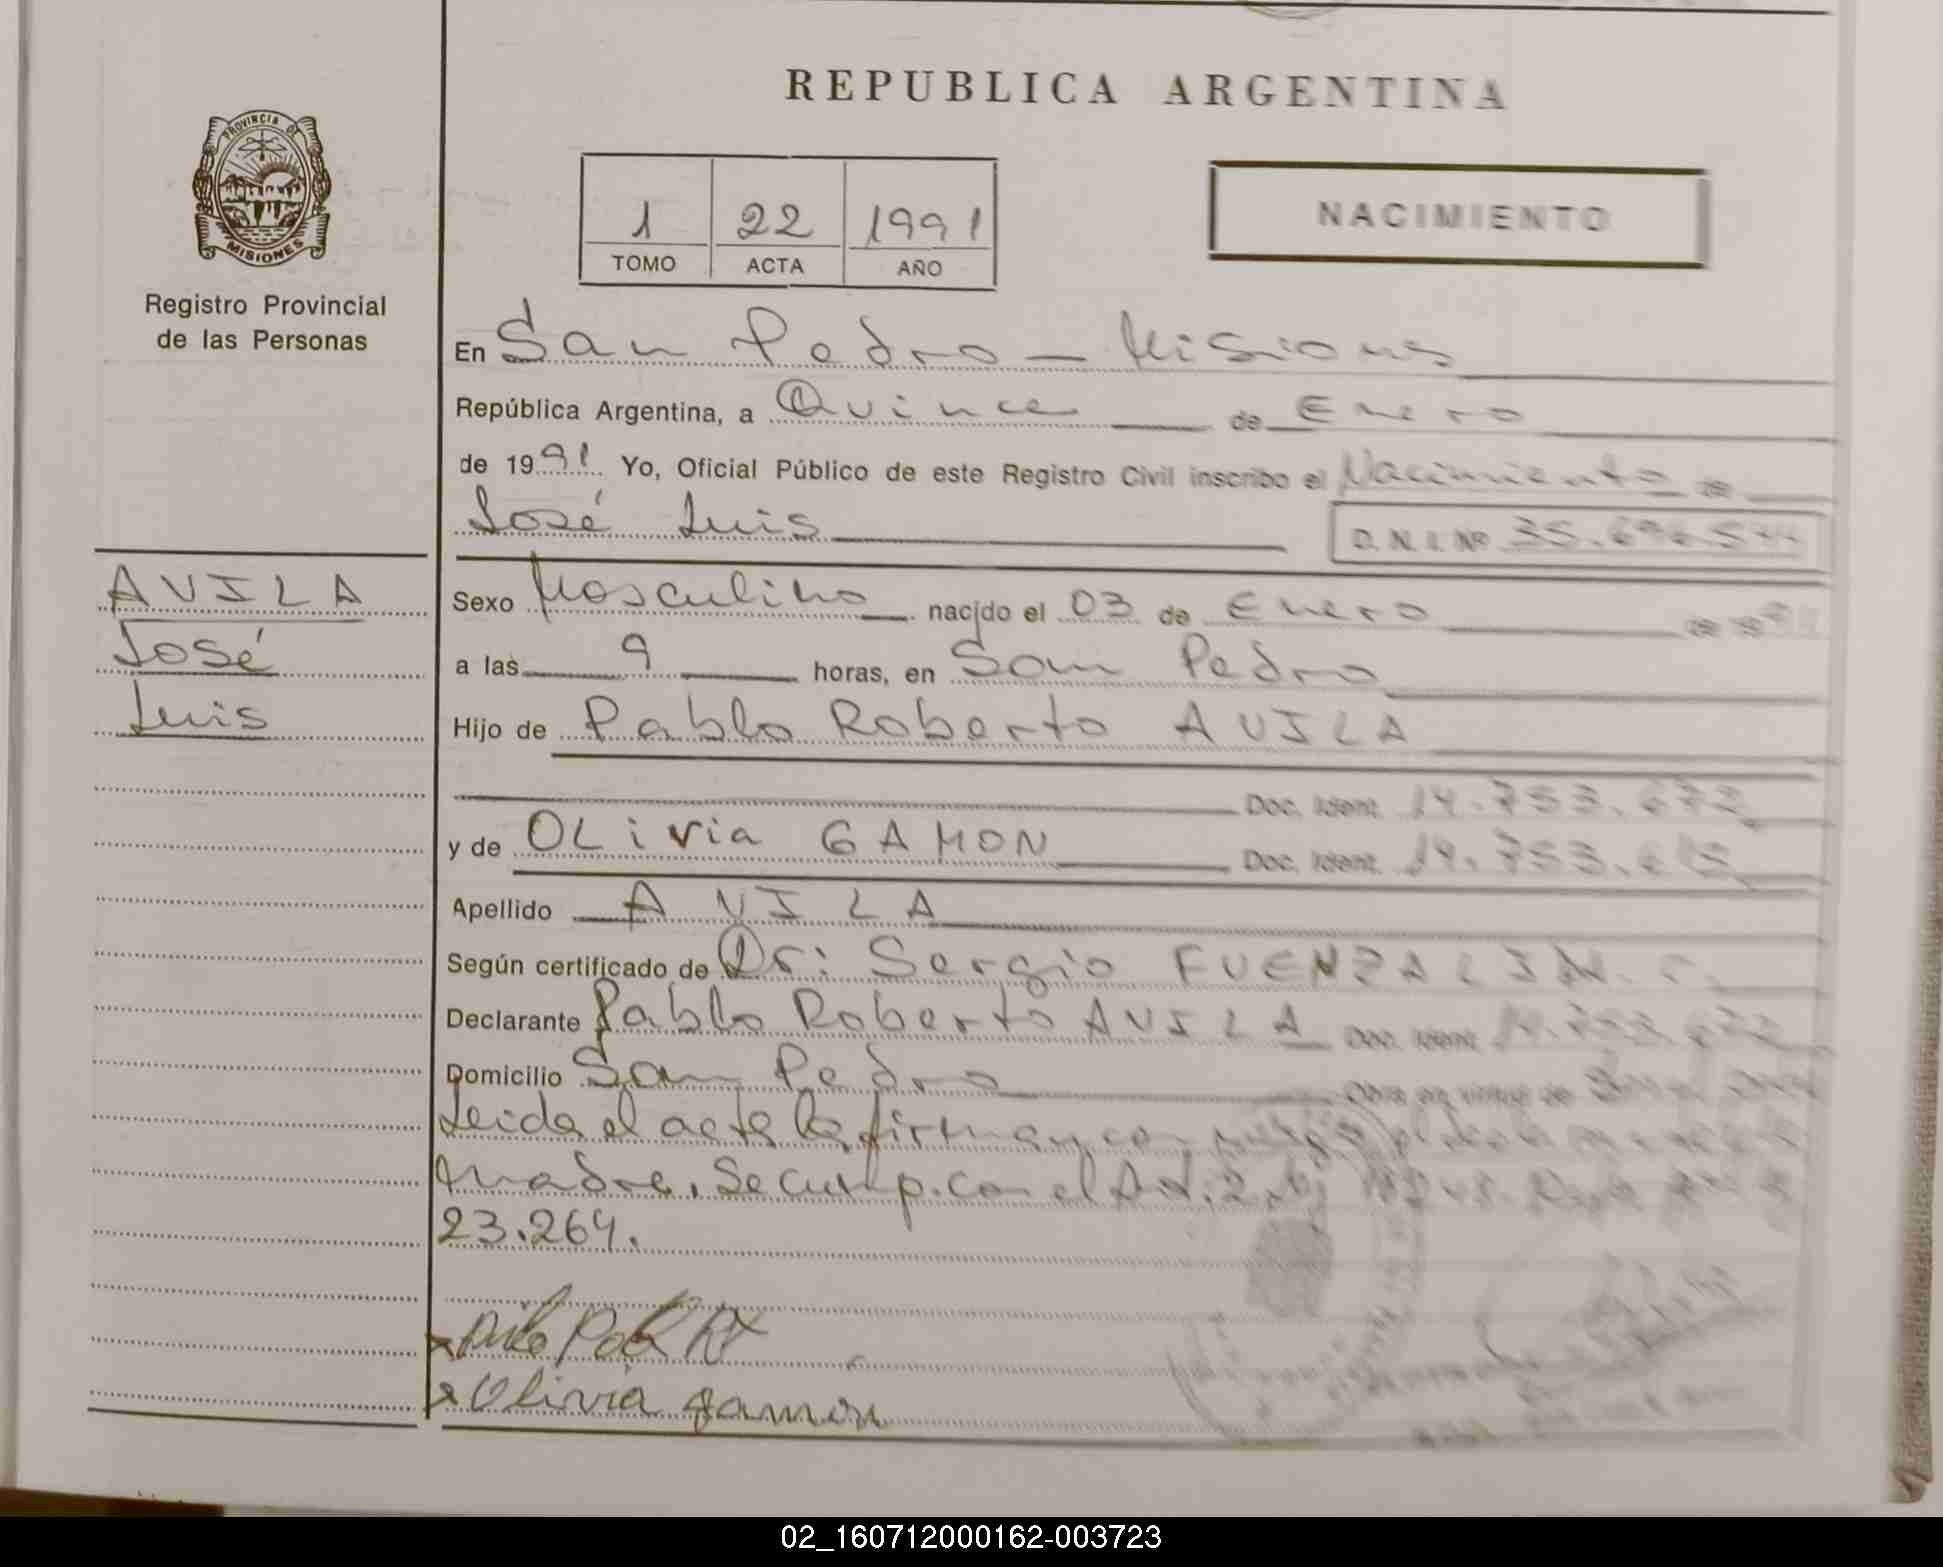 REPUBLICA ARGENTINA
PROVINCIA DE
MISIONES
Registro Provincial
de las Personas
1 22 1991
TOMO ACTA AÑO
NACIMIENTO
En San Pedro - Misiones
República Argentina, a Quince de Enero
de 1991 Yo, Oficial Público de este Registro Civil inscribo el Nacimiento de
José Luis
D. N. I. Nº
AVILA
José
Luis
Sexo Masculino nacido el 03 de Enero
a las 9 horas, en San Pedro
Hijo de Pablo Roberto AVILA
Doc. Ident. 14.753.672
y de OLivia GAMON Doc. Ident. 14.753.
Apellido AVILA
Según certificado de Dr: Sergio
Declarante Pablo Roberto AVILA Doc. Ident. 14.753.672
Domicilio San Pedro
Leida el acta la firman
madre. Se cump. con el
23.264.
x
x Olivia gamon
02_160712000162-003723